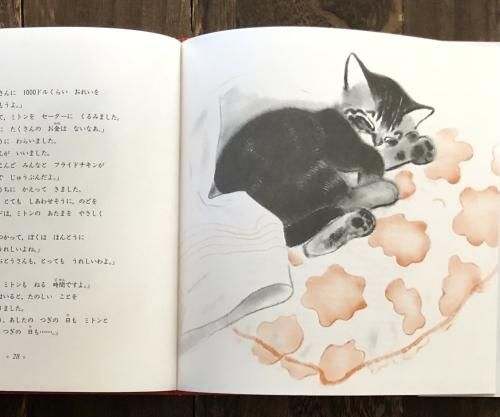 さんに 1000ドルくらい おれいを
もうよ。」
て、ミトンを セーターに くるみました。
に たくさんの お金は ないなあ。」
うに わらいました。
んが いいました。
こんど みんなと フライドチキンが
で じゅうぶんだよ。」
うちに かえって きました。
、とても しあわせそうに、のどを
ドは、ミトンの あたまを やさしく
つかって、ぼくは ほんとうに
うれしいよね。」
おとうさんも、とっても うれしいわよ。」
、ミトンも ねる 時間ですよ。」
はいると、たのしい ことを
りました。
う、あしたの つぎの 日も ミトンと
つぎの 日も……。」
28